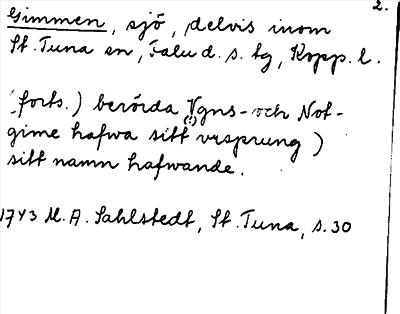 2.
Gimmen, sjö, delvis inom
St. Tuna sn, Falu d. s. tg, Kopp. l.
(forts.) berörda Ygns- och Not-
(!)
gime hafwa sitt vrsprung)
sitt namn hafwande.
1743 M. A. Sahlstedt, St. Tuna, s. 30